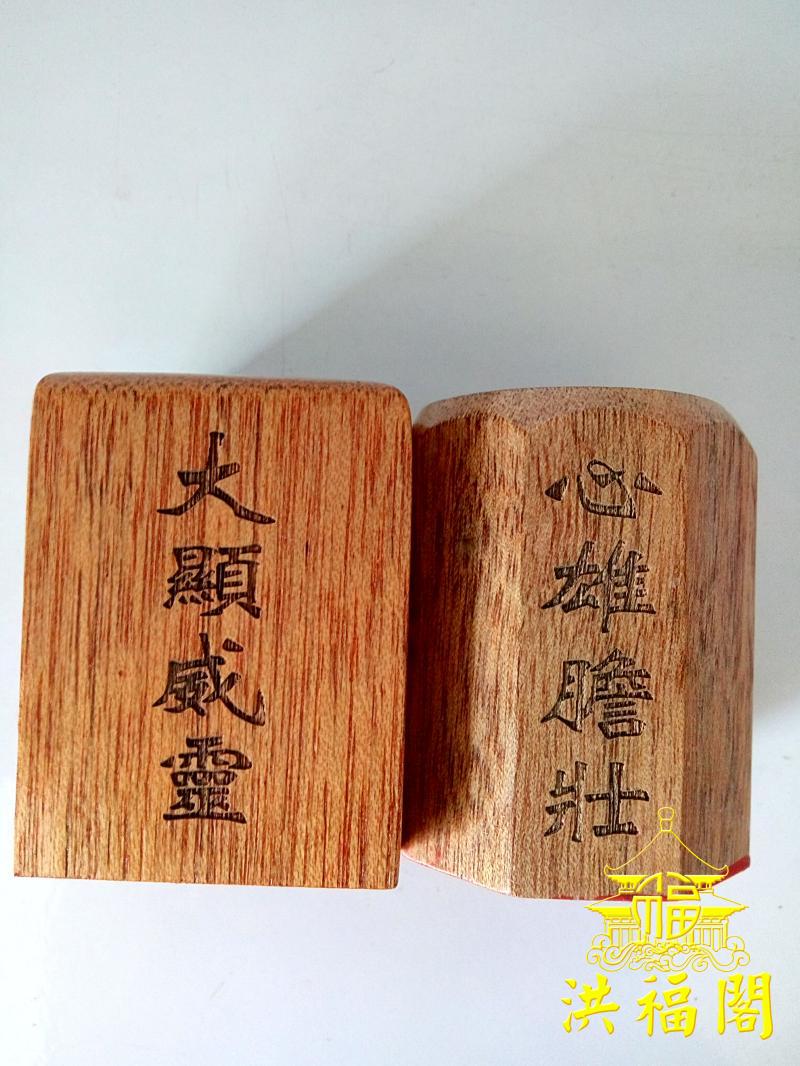 大顯威靈
心雄膽壯
福
洪福閣